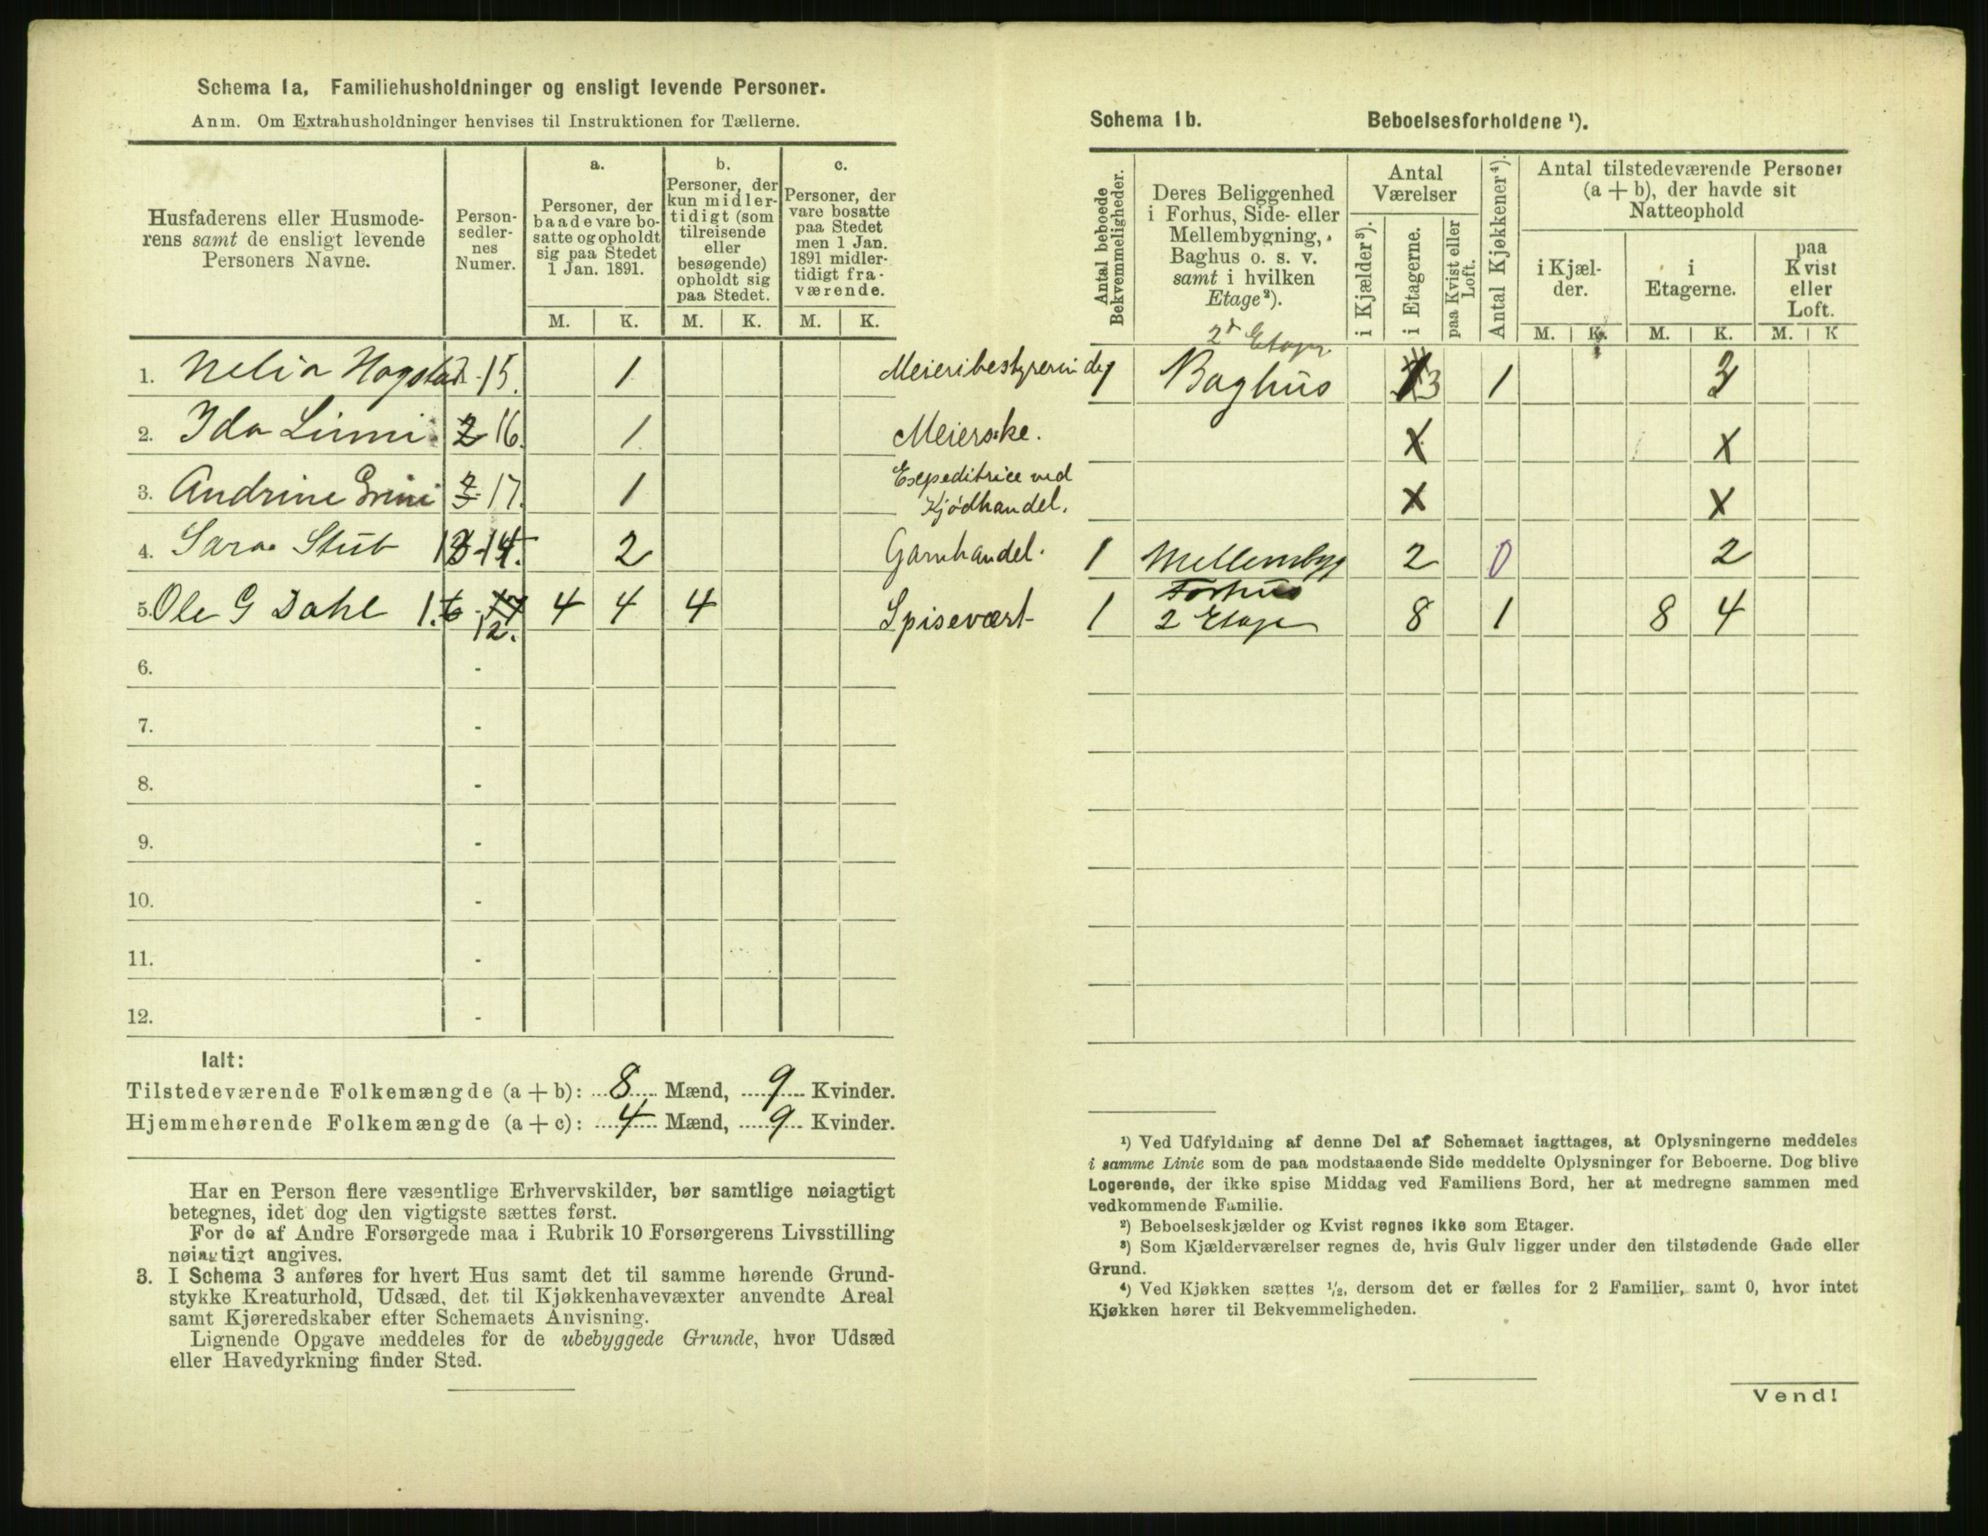 Schema 1a, Familiehusholdninger og ensligt levende Personer.
Anm. Om Extrahusholdninger henvises til Instruktionen for Tællerne.
Husfaderens eller Husmode-
rens samt de ensligt levende
Personers Navne.
Person-
sedler-
nes
Numer.
a.
Personer, der
baade vare bo-
satte og opholdt
sig paa Stedet
1 Jan. 1891.
b.
Personer, der
kun midler-
tidigt (som
tilreisende
eller
besøgende)
opholdt sig
paa Stedet.
c.
Personer, der
vare bosatte
paa Stedet
men 1 Jan.
1891 midler-
tidigt fra-
værende.
M. K. M. K. M. K.
1. Nelia Hogstad - 15. 1 Meieribestyrerinde
2. Ida Linni 2 16. 1 Meierske.
3. Andrine Grini 17. 1 Expeditrice ved
Kjødhandel.
4. Sara Stub 13-14. 2 Garnhandel.
5. Ole G Dahl 1. 12. 4 4 4 Spisevært
6. -
7. -
8. -
9. -
10. -
11. -
12. -
Ialt:
Tilstedeværende Folkemængde (a + b): 8 Mænd, 9 Kvinder.
Hjemmehørende Folkemængde (a + c): 4 Mænd, 9 Kvinder.
Har en Person flere væsentlige Erhvervskilder, bør samtlige nøiagtigt
betegnes, idet dog den vigtigste sættes først.
For de af Andre Forsørgede maa i Rubrik 10 Forsørgerens Livsstilling
nøiagtigt angives.
3. I Schema 3 anføres for hvert Hus samt det til samme hørende Grund-
stykke Kreaturhold, Udsæd, det til Kjøkkenhavevæxter anvendte Areal
samt Kjøreredskaber efter Schemaets Anvisning.
Lignende Opgave meddeles for de ubebyggede Grunde, hvor Udsæd
eller Havedyrkning finder Sted.
Schema 1b. Beboelsesforholdene ¹).
Antal beboede
Bekvemmeligheder.
Deres Beliggenhed
i Forhus, Side- eller
Mellembygning,
Baghus o. s. v.
samt i hvilken
Etage²).
Antal
Værelser
i Kjælder³).
i Etagerne.
paa Kvist eller
Loft.
Antal Kjøkkener⁴).
Antal tilstedeværende Personer
(a + b), der havde sit
Natteophold
i Kjæl-
der.
i
Etagerne.
paa
Kvist
eller
Loft.
M. K. M. K. M. K
2d Etage
1 Baghus 3 1 3
X X
X X
1 Mellembyg 2 0 2
Forhus
1 2 Etage 8 1 8 4
¹) Ved Udfyldning af denne Del af Schemaet iagttages, at Oplysningerne meddeles
i samme Linie som de paa modstaaende Side meddelte Oplysninger for Beboerne. Dog blive
Logerende, der ikke spise Middag ved Familiens Bord, her at medregne sammen med
vedkommende Familie.
²) Beboelseskjælder og Kvist regnes ikke som Etager.
³) Som Kjælderværelser regnes de, hvis Gulv ligger under den tilstødende Gade eller
Grund.
⁴) Ved Kjøkken sættes ½, dersom det er fælles for 2 Familier, samt 0, hvor intet
Kjøkken hører til Bekvemmeligheden.
Vend!